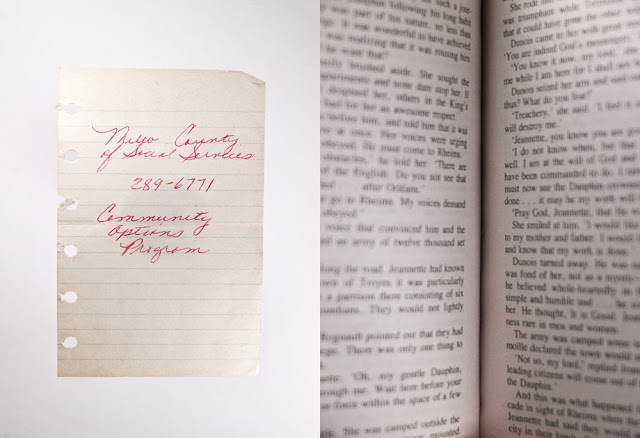 Milw County
of Social Services
289-6771
Community
Options
Program
following his long habit
part of his nature, no less than
It was wonderful to have achieved
was realizing that it was rousing him
be want that?'
brushed aside. She sought the
and some dare stop her. If
despised her, others in the King's
had for her an awesome respect.
before him, and told him that it was
at once. Her voices were urging
obeyed. He must come to Rheims.
he told her. 'There are
of the English. Do you not see that
after Orléans.'
go to Rheims. My voices demand
obeyed.'
voices that convinced him and the
an army of twelve thousand set
long the road. Jeannette had known
town of Troyes it was particularly
a garrison there consisting of six
They would not lightly
pointed out that they had
There was only one thing to
'Oh, my gentle Dauphin,
through me. Wait here before your
force within the space of a few
She was camped outside the
mounted
She rode
was triumphant while
that it could have gone the other
Dunois came to her with great
'You are indeed God's messenger,
'You know it now, my lord,' she
me while I am here for I shall not
Dunois seized her arm and said
thus? What do you fear?'
'Treachery,' she said. 'I feel it
will destroy me.'
'Jeannette, you know you are
'I do not know when, but that
well. I am at the will of God and
have been commanded to do. I
must now see the Dauphin crowned
done . . . it may be my work will
'Pray God, Jeannette, that He
She smiled at him. 'I would like
to my mother and father. I would
and know that my work is done.'
Dunois turned away. He was
was fond of her, not as a
he believed whole-heartedly in
simple and humble and . . . he
her. He thought, It is Good.
ness rare in men and women.
The army was camped some
moille declared the town would
'Not so, my lord,' replied
leading citizens will come out of
the Dauphin.'
And this was what happened
cade in sight of Rheims when the
Jeannette had said they would
city in these